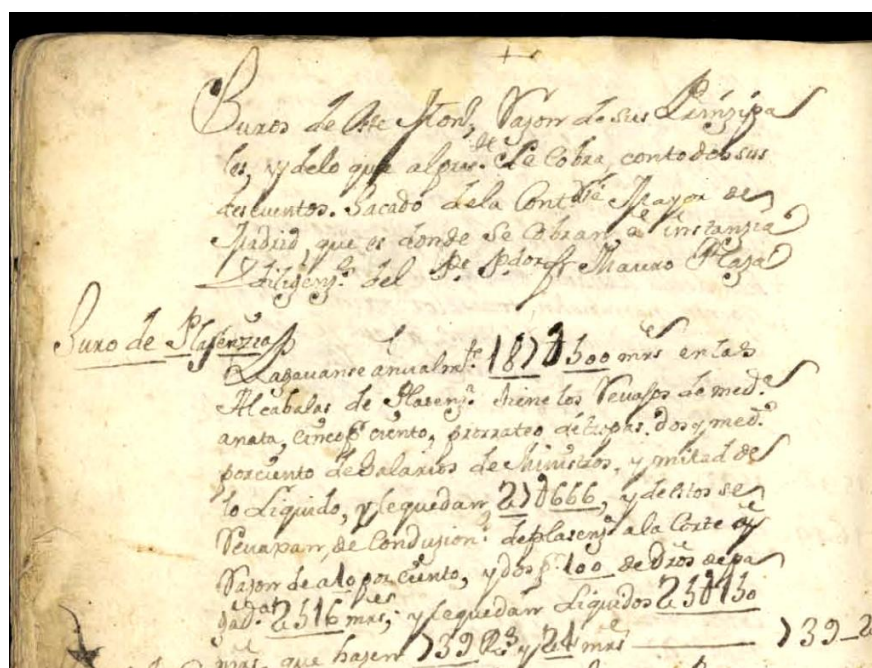 +
Juros de este Mon.º, Razon de sus Prinzipa
les, y de lo que al pres.te se Cobra, con todos sus
descuentos. Sacado de la Cont.ria Mayor de
Madrid, que es donde se Cobran a instanzia
y diligenz.a del P.e P.dor fr Mauro Plaza
Juro de Plasenzia
Pagavanse anualm.te 187U500 mrs en las
Alcabalas de Plasenz.a tiene los Revajos de med.a
anata, cinco p.r ciento, prorrateo de tropas. dos y med.o
por ciento de Salarios de Ministros, y mitad de
lo Liquido, y le quedan 27U666, y de estos se
Revaxan, de Conduzion.s de plasenz.a a la Corte oy
Razon de a 10 por ciento, y dos p.r 100 de Dros de pa
gad.or 2516 mrs, y le quedan Liquidos 25U150
mrs. que hazen 739 Rs y 24 mrs 739_2